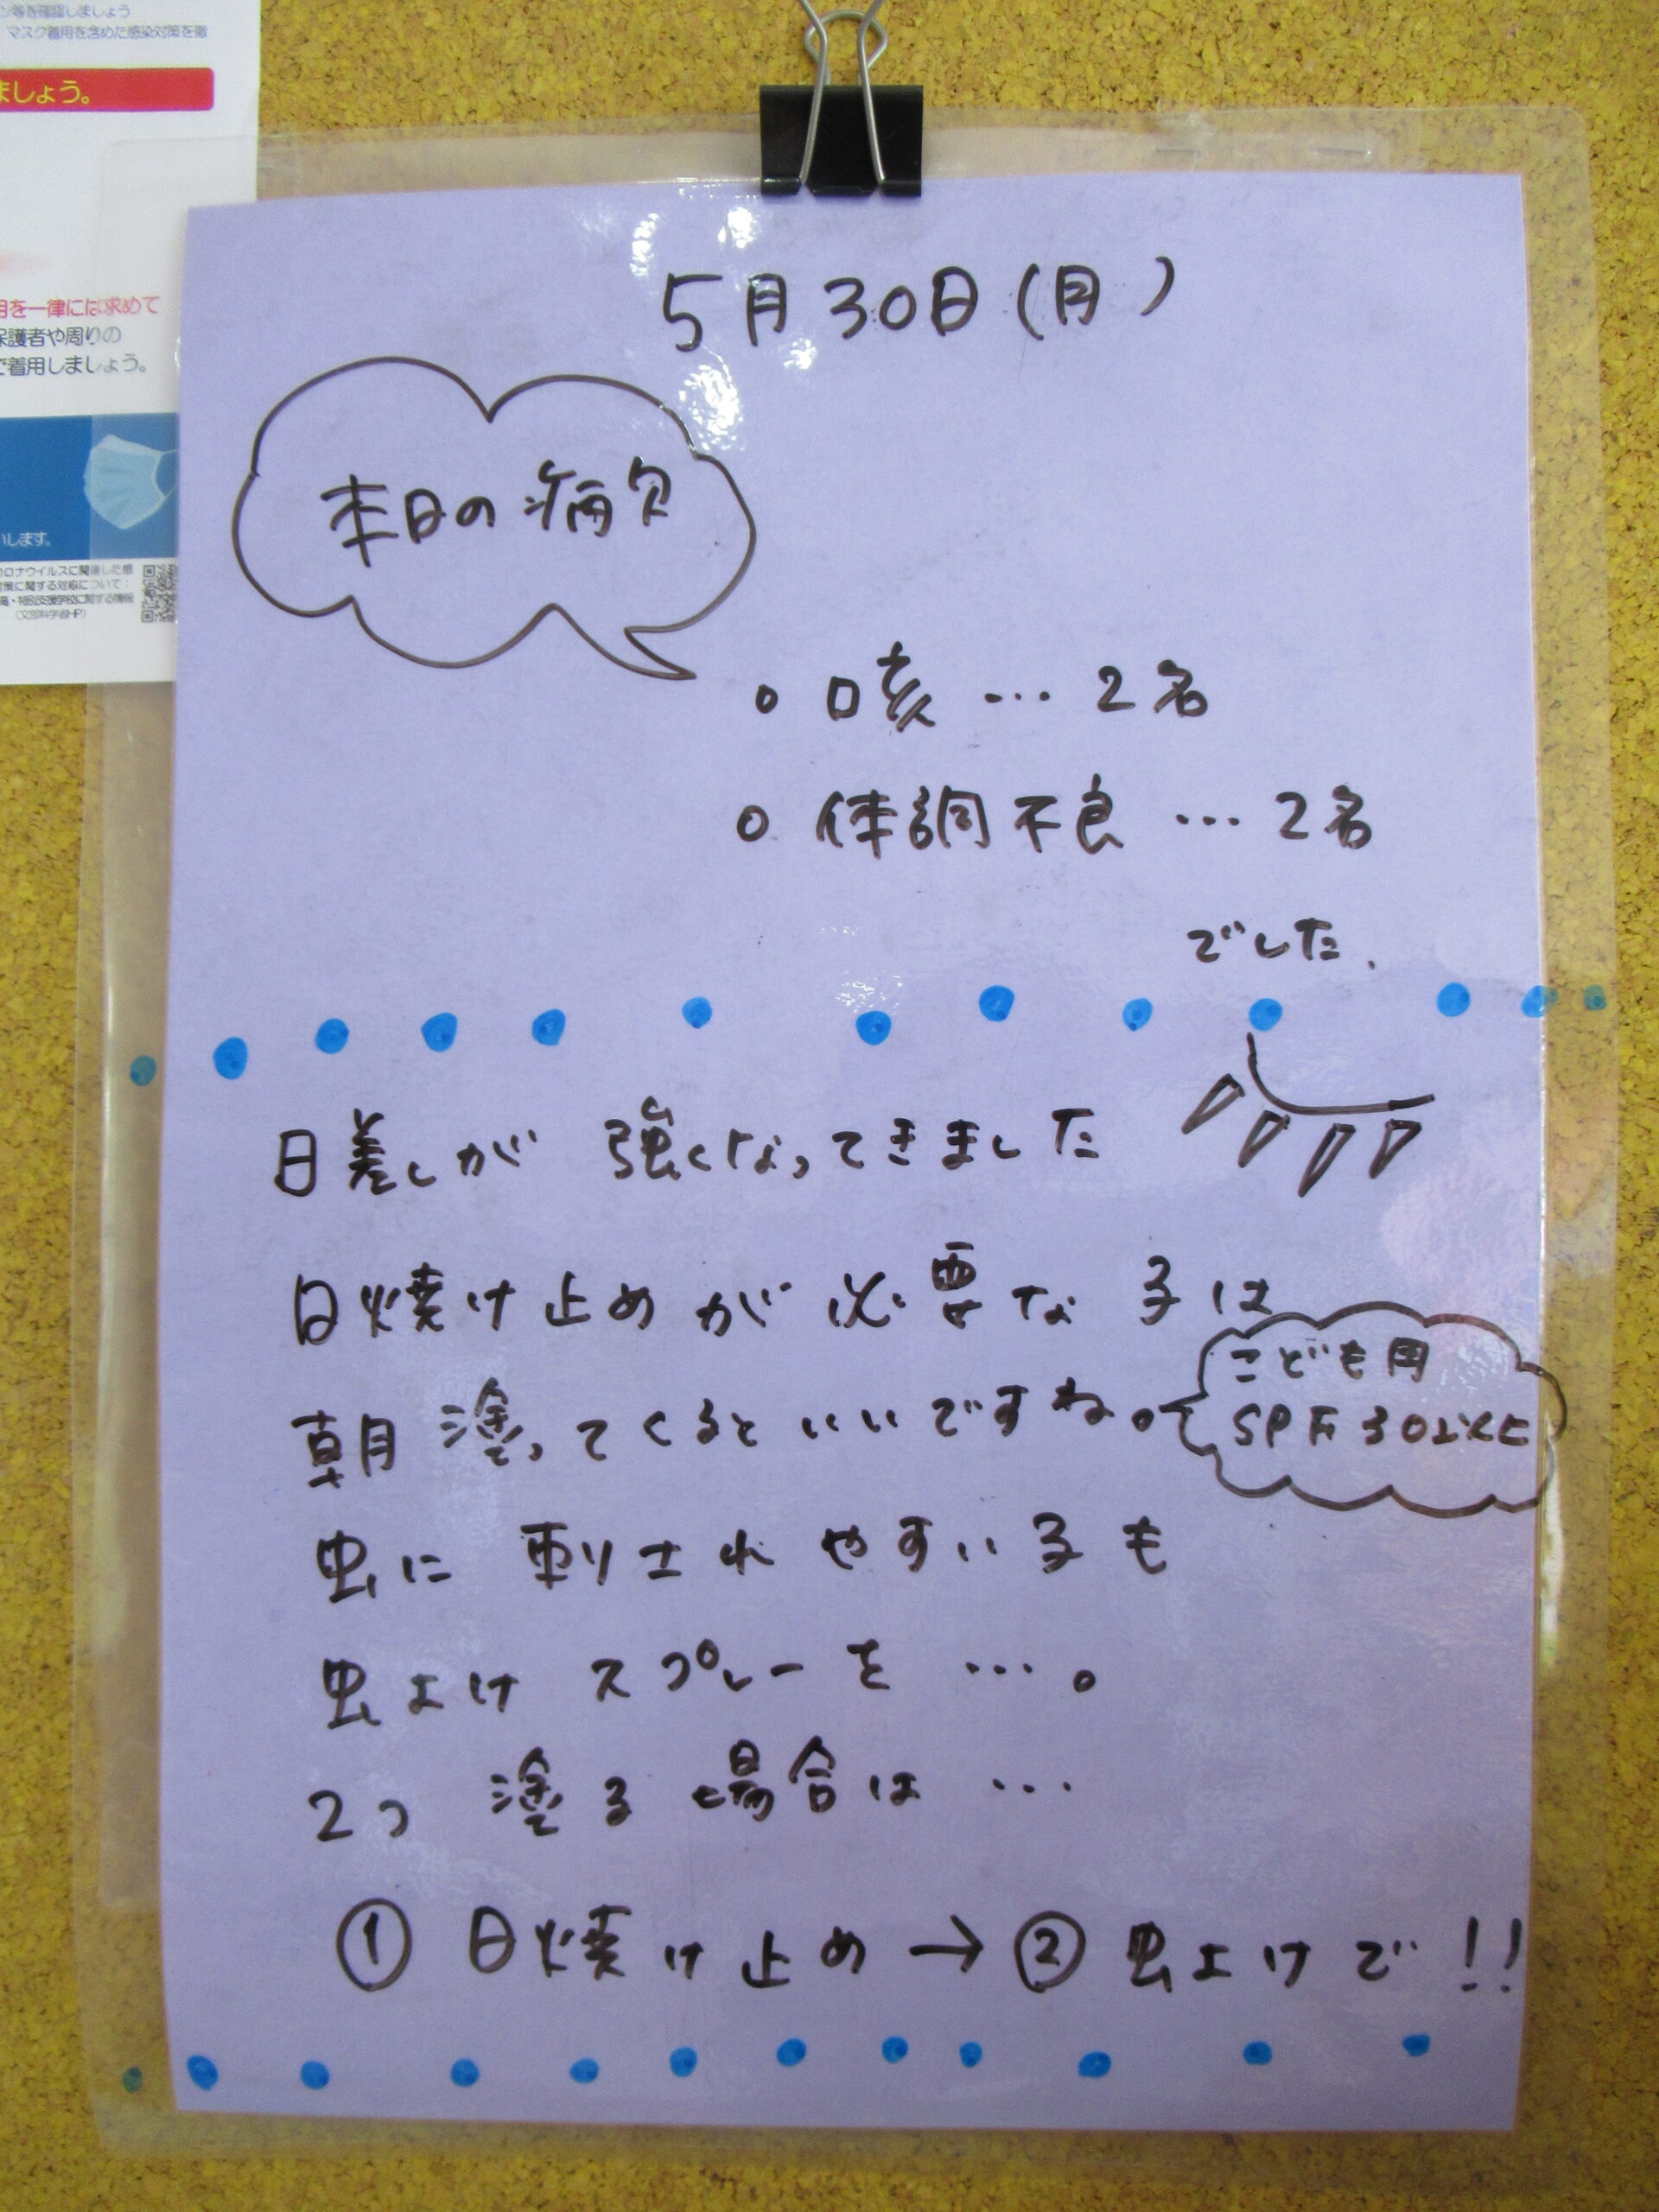 ン等を確認しましょう
マスク着用を含めた感染対策を徹
ましょう。
用を一律には求めて
保護者や周りの
で着用しましょう。
いします。
コロナウイルスに関連した感
対策に関する対応について：
高・特別支援学校に関する情報
（文部科学省HP）
5月30日(月)
本日の病欠
○ 咳 … 2名
○ 体調不良 … 2名
でした.
日差しが 強くなってきました
日焼け止めが 必要な 子は
朝 塗ってくるといいですね。
こども用
SPF30以上
虫に 刺されやすい子も
虫よけ スプレーを …。
2つ 塗る 場合は …
① 日焼け止め → ② 虫よけで !!